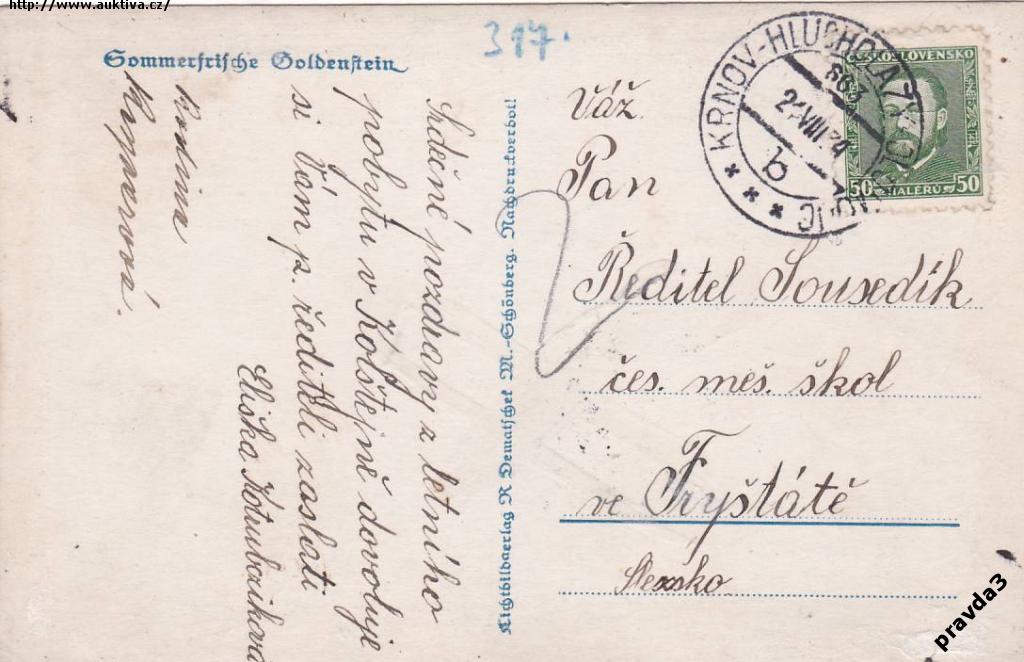 http://www.auktiva.cz/
317.
Sommerfrische Goldenstein
Srdečné pozdravy z letního
pobytu v Kolštejně dovoluje
si Vám p. řediteli zaslati
Eliška
Rodina
Lichtbildverlag R Dematschek M.-Schönberg. Nachdruck verbot!
KRNOV-HLUCHOLAZY
663
VIII 34
b
ČESKOSLOVENSKO
50 HALÉŘŮ 50
Váž.
Pan
Ředitel Sousedík
čes. měš. škol
ve Fryštátě
Slezsko
pravda3